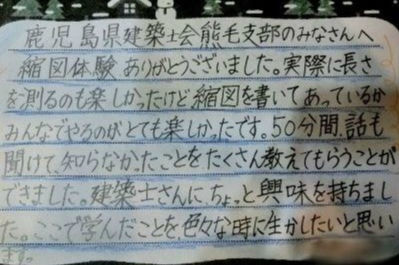 鹿児島県建築士会熊毛支部のみなさんへ
縮図体験ありがとうございました。実際に長さ
を測るのも楽しかったけど縮図を書いてあっているか
みんなでやるのがとても楽しかったです。50分間、話も
聞けて知らなかったことをたくさん教えてもらうことが
できました。建築士さんにちょっと興味を持ちまし
た。ここで学んだことを色々な時に生かしたいと思い
ます。